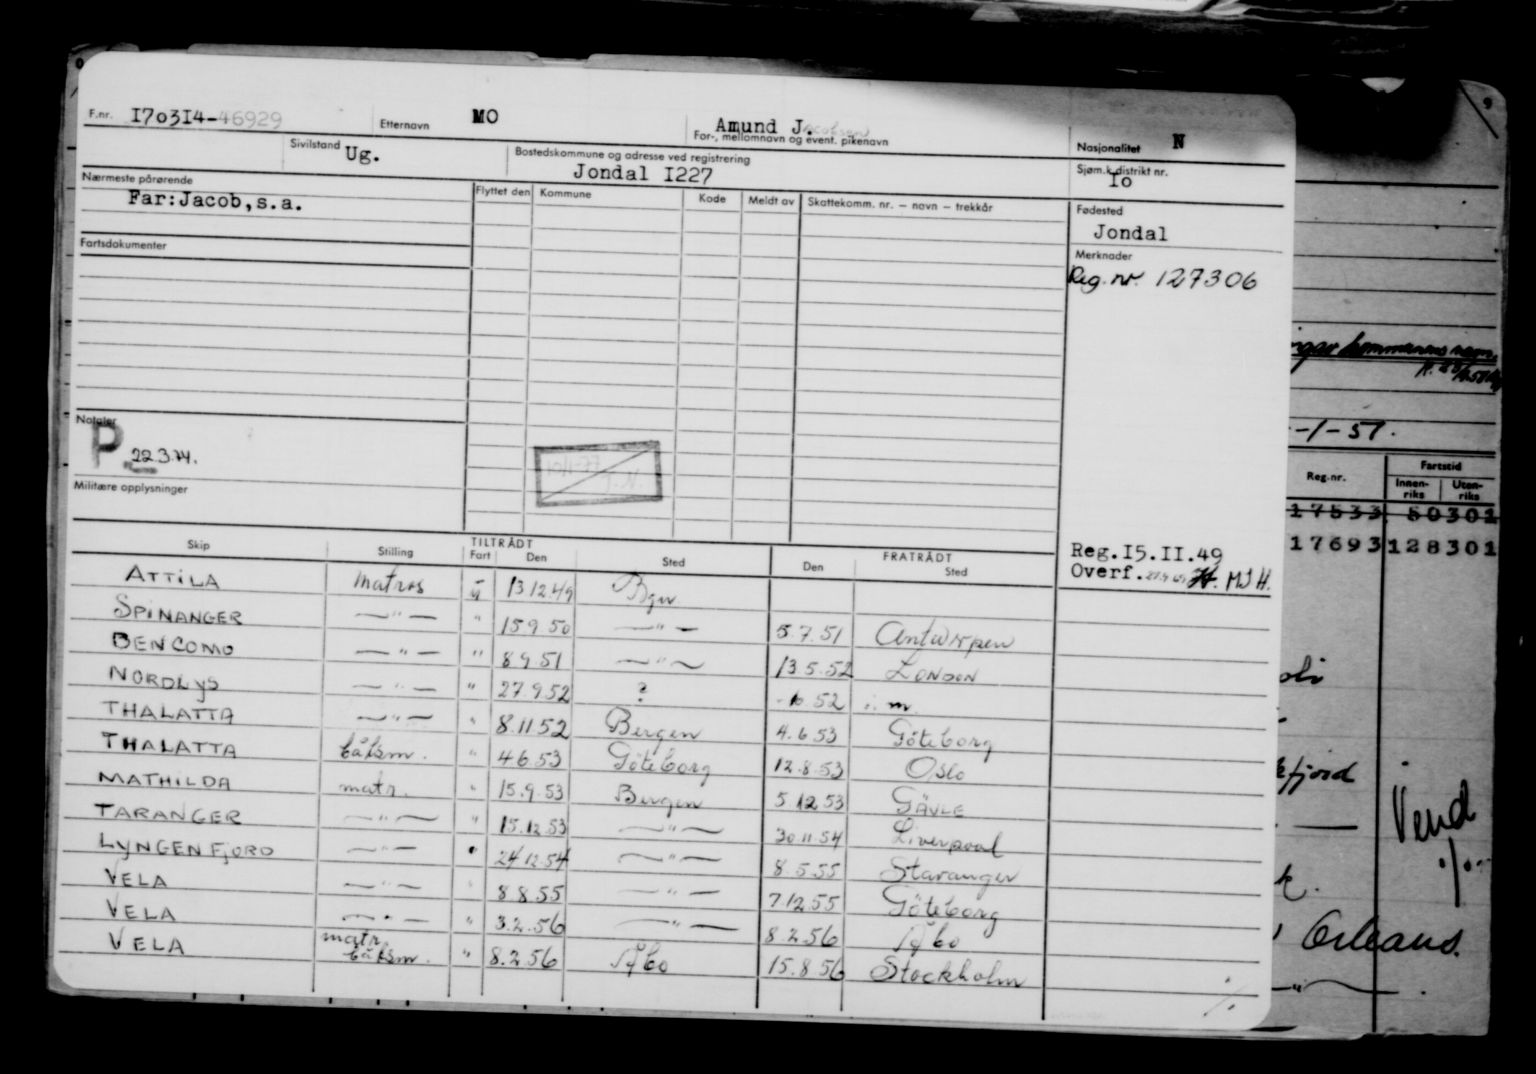 F.nr. 170314-46929 Etternavn MO Amund Jacobsen For-, mellomnavn og event. pikenavn Nasjonalitet N
Sivilstand Ug. Bostedskommune og adresse ved registrering Jondal 1227 Sjøm.k.distrikt nr. 1o
Nærmeste pårørende Flyttet den Kommune Kode Meldt av Skattekomm. nr. — navn — trekkår Fødested
Far:Jacob,s.a. Jondal
Fartsdokumenter Merknader
Reg. nr. 127306
Notater
P 22.3.74.
Militære opplysninger
TILTRÅDT FRATRÅDT Reg.15.11.49
Skip Stilling Fart Den Sted Den Sted Overf. M.J.H.
ATTILA matros u 13.12.49 Bgn.
SPINANGER —"— " 15.9.50 —"— 5.7.51 Antwerpen
BENCOMO —"— " 8.9.51 —"— 13.5.52 LONDON
NORDLYS —"— " 27.9.52 ? 52
THALATTA —"— " 8.11.52 Bergen 4.6.53 Göteborg
THALATTA båtsm. " 4.6.53 Göteborg 12.8.53 Oslo
MATHILDA matr. " 15.9.53 Bergen 5.12.53 GÄVLE
TARANGER —"— " 15.12.53 —"— 30.11.54 Liverpool
LYNGENFJORD —"— " 24.12.54 —"— 8.5.55 Stavanger
VELA —"— " 8.8.55 —"— 7.12.55 Göteborg
VELA —"— " 3.2.56 —"— 8.2.56 Åbo
VELA matr. båtsm. " 8.2.56 Åbo 15.8.56 Stockholm
-1-51.
Reg.nr. Fartstid
Innen-riks Uten-riks
17533 50301
17693 128301
fjord
Vend
Orleans.